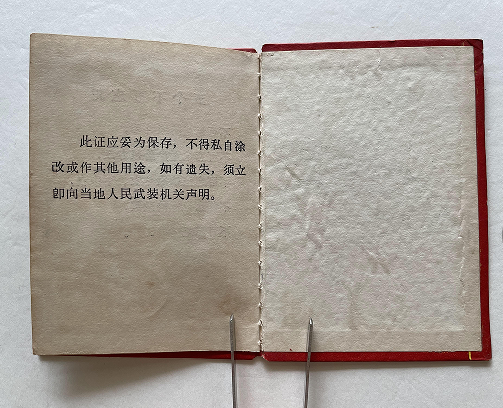 此证应妥为保存，不得私自涂
改或作其他用途，如有遗失，须立
即向当地人民武装机关声明。